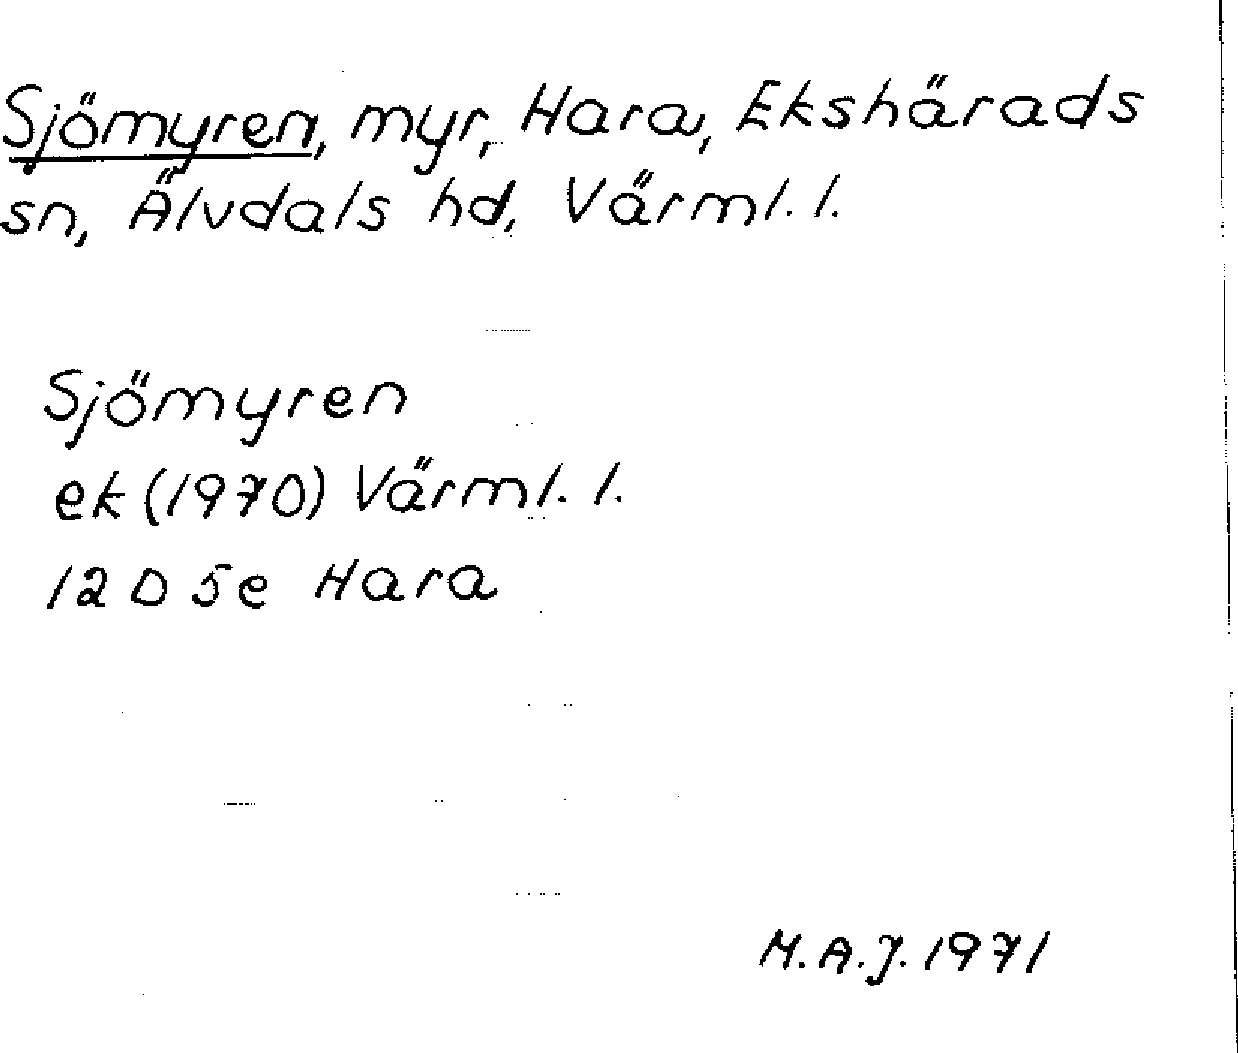 Sjömyren, myr, Hara, Ekshärads
sn, Älvdals hd, Värml. l.
Sjömyren
ek (1970) Värml. l.
12 D 5e Hara
M.A.J. 1971